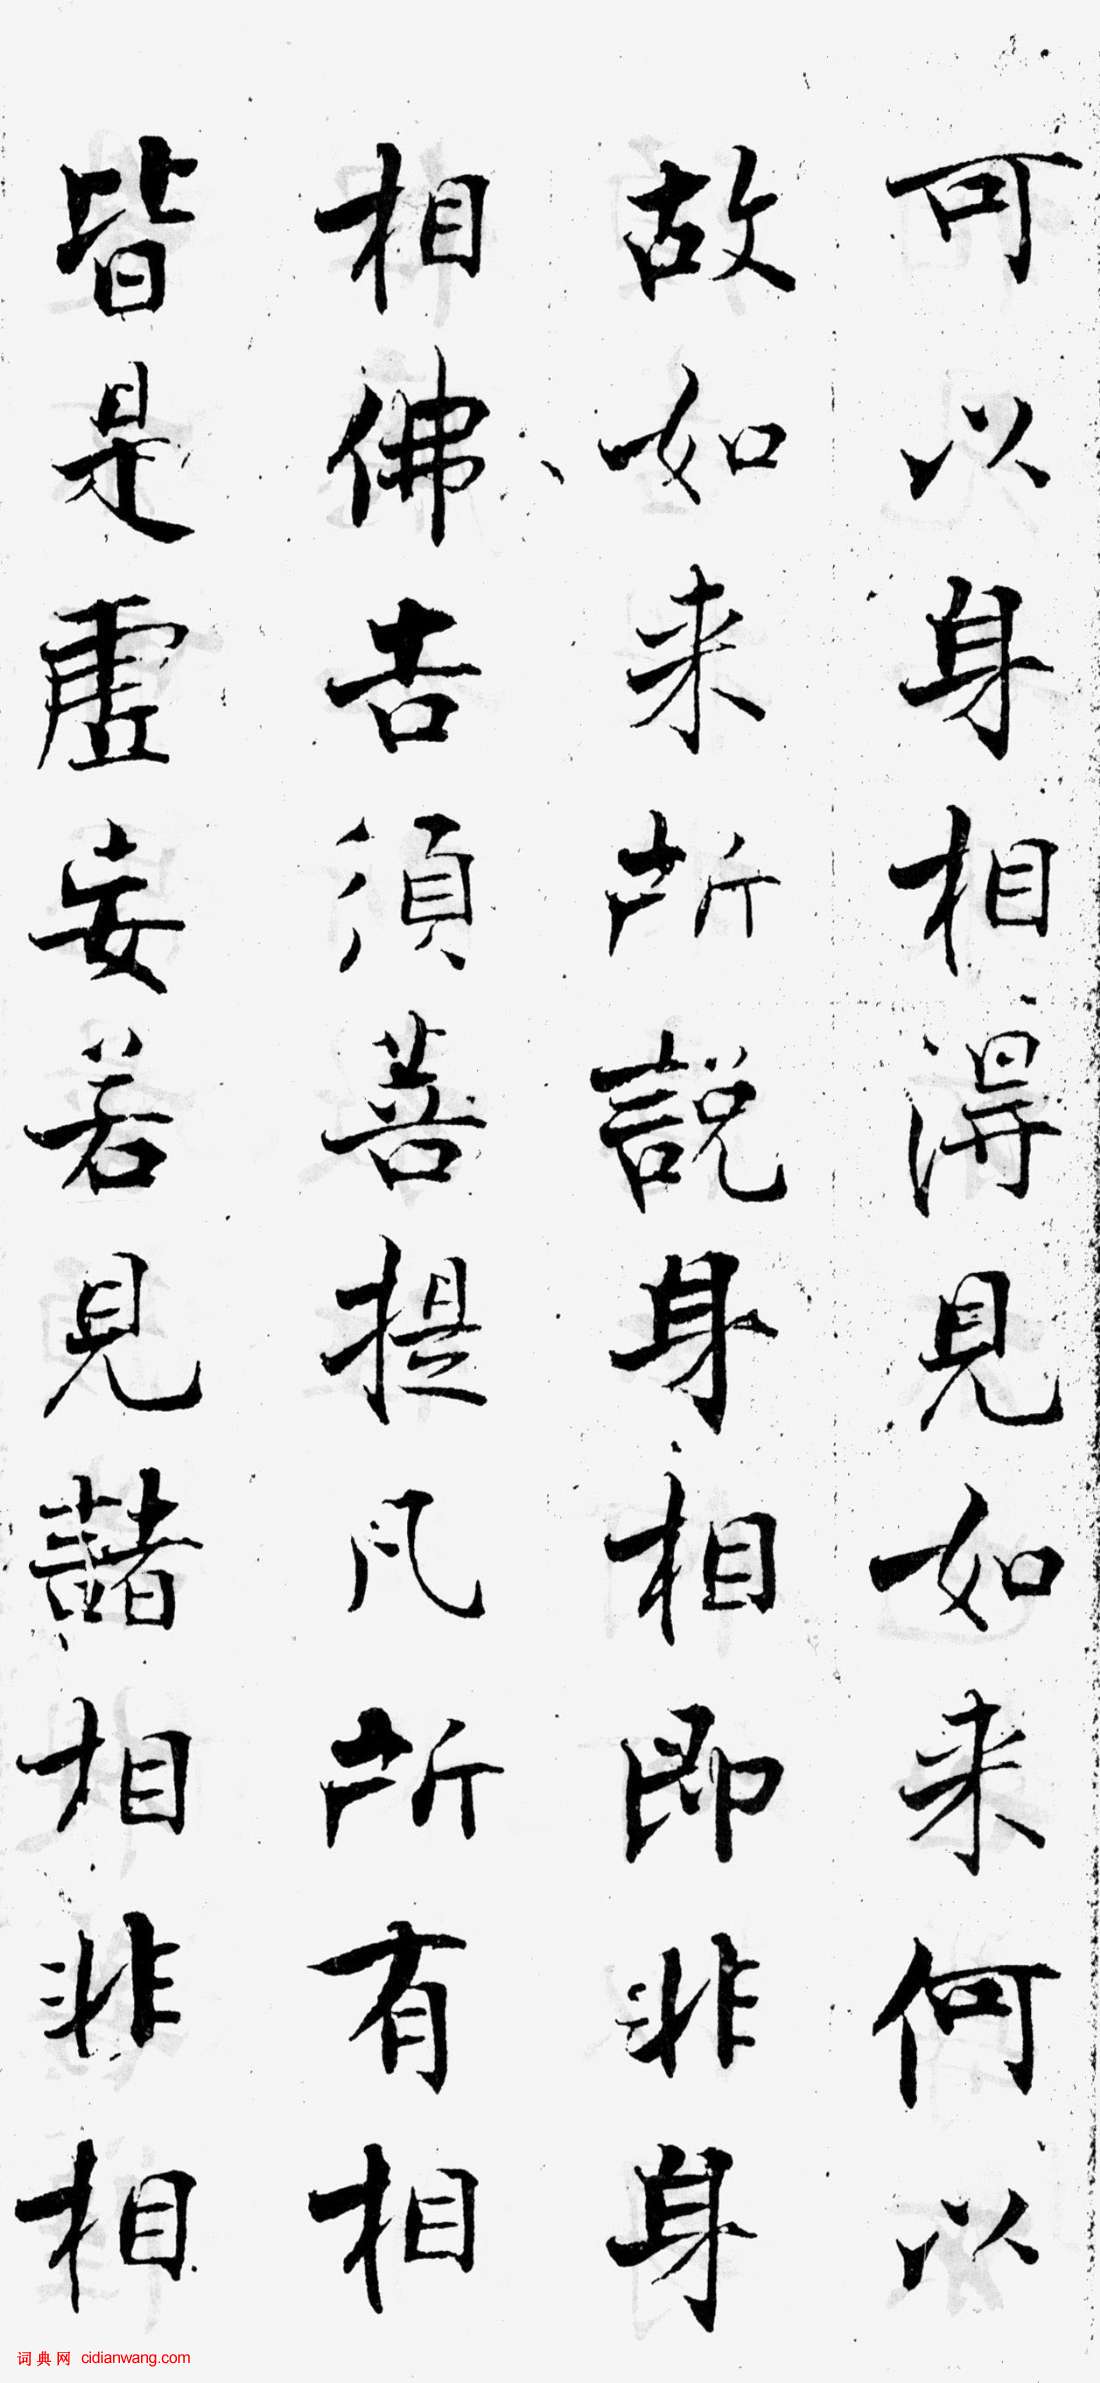 可以身相得見如来何以
故如来所說身相即非身
相佛告須菩提凡所有相
皆是虛妄若見諸相非相
词典网 cidianwang.com